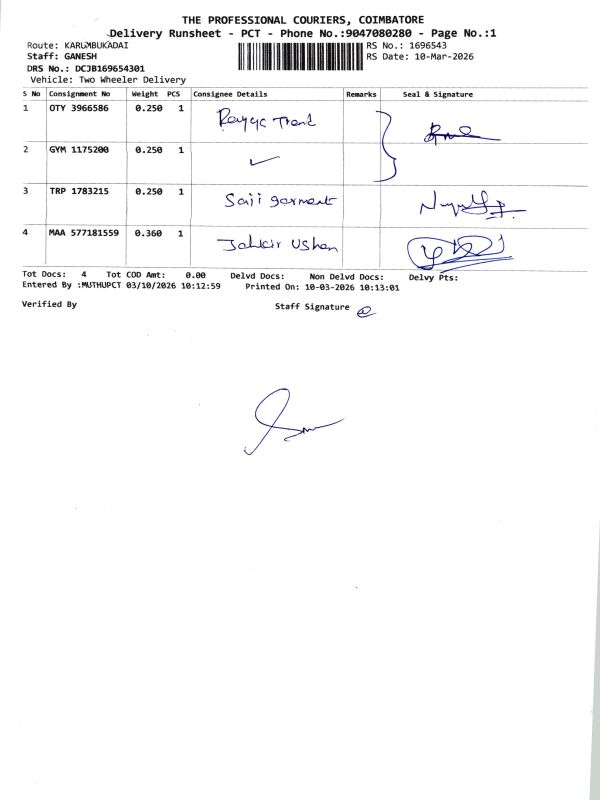 THE PROFESSIONAL COURIERS, COIMBATORE
Delivery Runsheet - PCT - Phone No.:9047080280 - Page No.:1
Route: KARUMBUKADAI
RS No.: 1696543
Staff: GANESH
RS Date: 10-Mar-2026
DRS No.: DCJB169654301
Vehicle: Two Wheeler Delivery
S No Consignment No Weight PCS Consignee Details Remarks Seal & Signature
1 OTY 3966586 0.250 1 Trend
2 GYM 1175200 0.250 1 ✓
3 TRP 1783215 0.250 1 Saji garment
4 MAA 577181559 0.360 1 Ushan
Tot Docs: 4 Tot COD Amt: 0.00 Delvd Docs: Non Delvd Docs: Delvy Pts:
Entered By :MUTHUPCT 03/10/2026 10:12:59 Printed On: 10-03-2026 10:13:01
Verified By Staff Signature